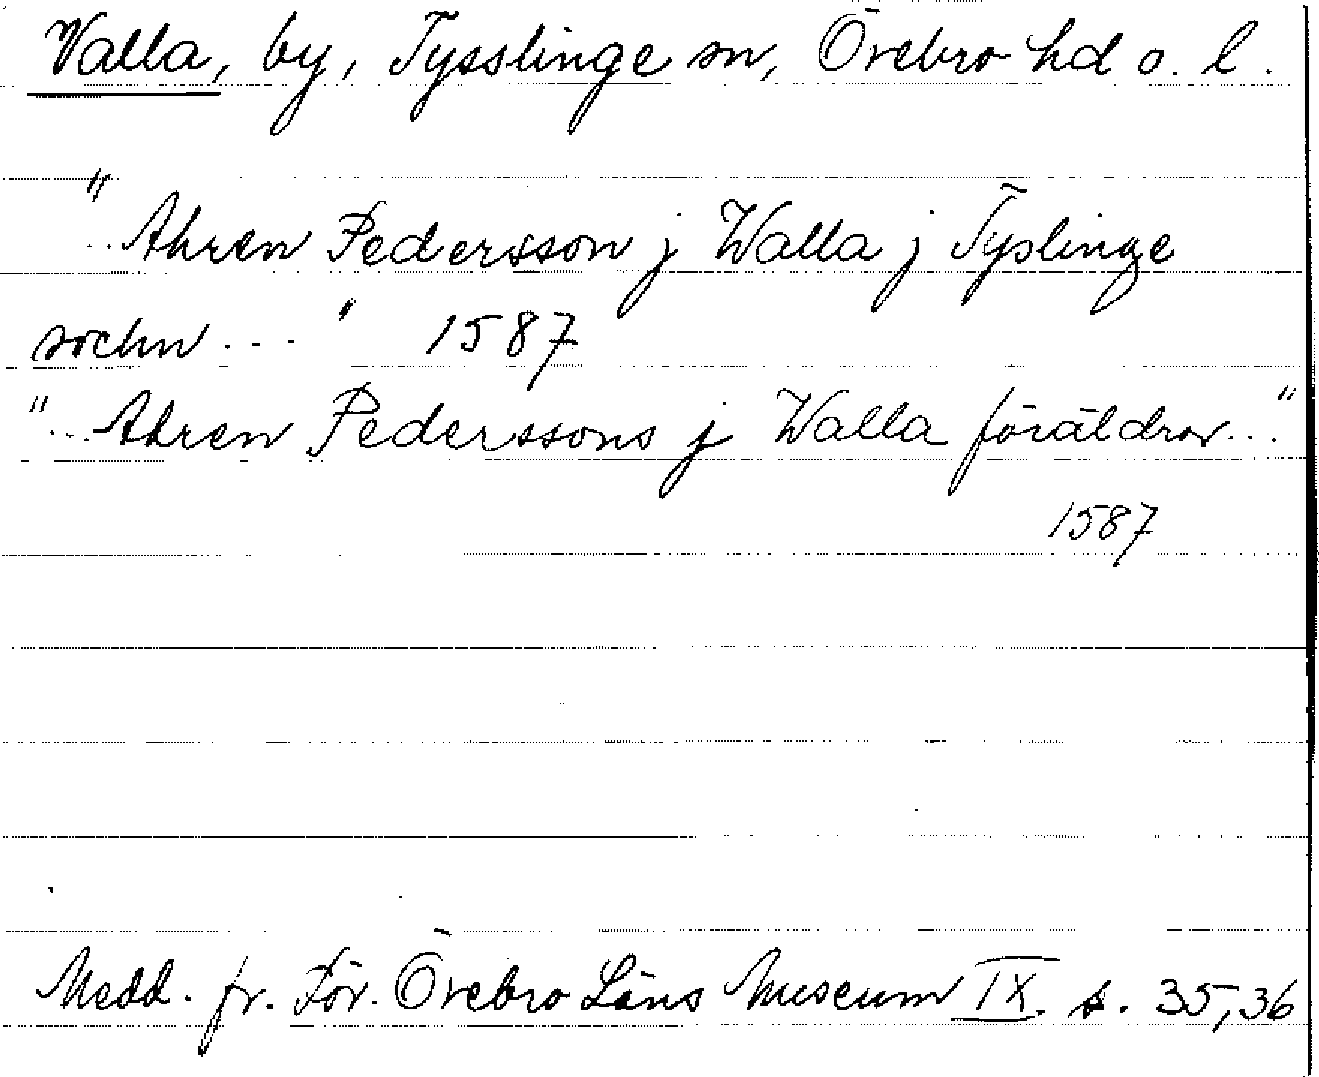 Valla, by, Tysslinge sn, Örebro hd o. l.
"..Ahren Pedersson j Walla j Tÿslinge
sochn ... " 1587
"...Ahren Pederssons j Walla föräldrar..."
1587
Medd. fr. För. Örebro Läns Museum IX. s. 35,36